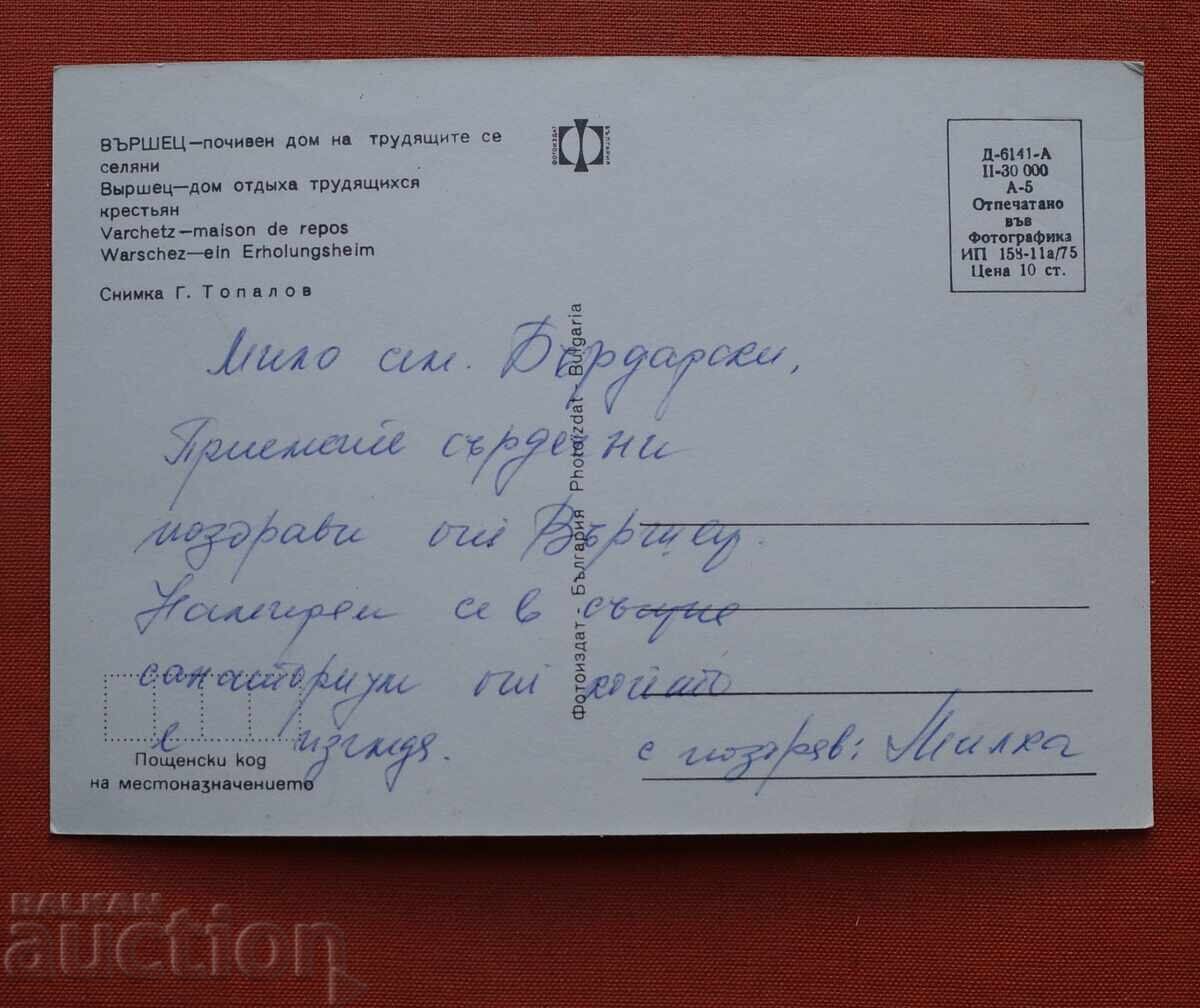 ВЪРШЕЦ—почивен дом на трудящите се
селяни
Выршец—дом отдыха трудящихся
крестьян
Varchetz—maison de repos
Warschez—ein Erholungsheim
Снимка Г. Топалов
ФОТОИЗДАТ
БЪЛГАРИЯ
Д-6141-А
II-30 000
А-5
Отпечатано
във
Фотографика
ИП 158-11а/75
Цена 10 ст.
Мило сем. Бърдарски,
Приемете сърдечни
поздрави от Вършец.
Намирам се в същия
санаториум от който
е изгледа.
с поздрав: Милка
Фотоиздат - България Photoizdat - Bulgaria
Пощенски код
на местоназначението
BALKAN
auction